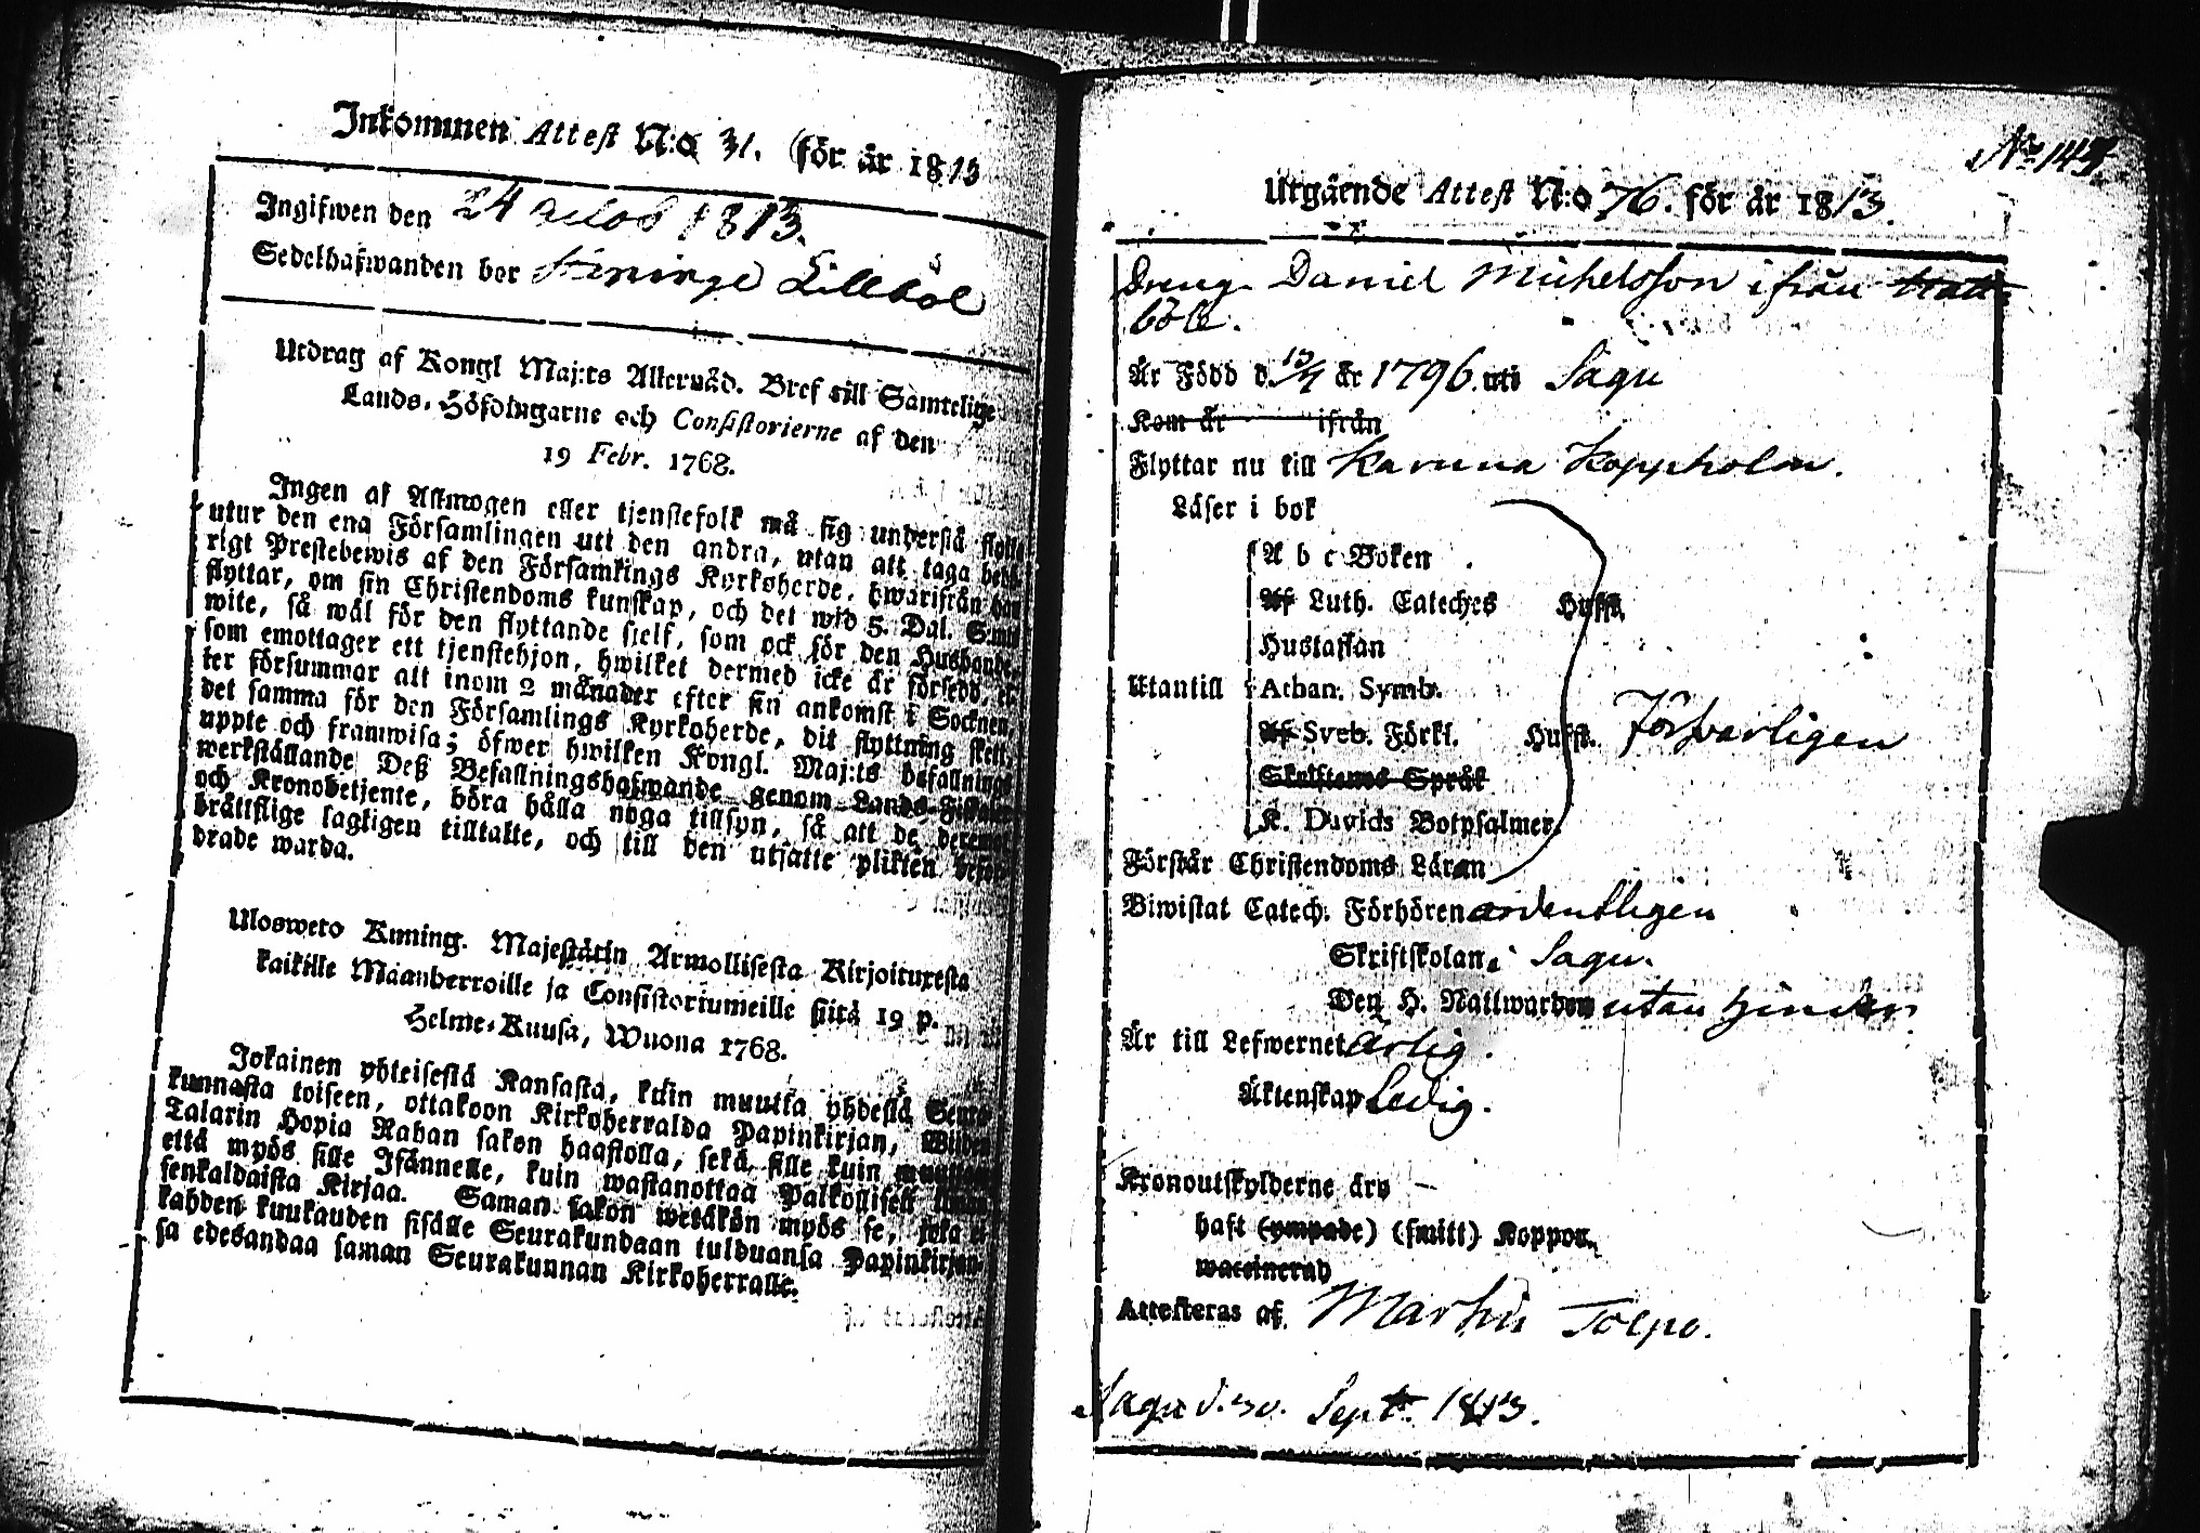 Inkommen Attest N:o 31. för år 1813
Ingifwen den 24 1813.
Sedelhafwanden bor Lillböl
Utdrag af Kongl Maj:ts Allernåd. Bref till Samtelige
Lands-Höfdingarne och Consistorierne af den
19 Febr. 1768.
Ingen af Allmogen eller tjenstefolk må sig understå flytta
utur den ena Församlingen uti den andra, utan att taga
rigt Prestebewis af den Församlings Kyrkoherde, hwarifrån han
flyttar, om sin Christendoms kunskap, och det wid 5. Dal. S:mts
wite, så wäl för den flyttande sjelf, som ock för den Husbonde,
som emottager ett tjenstehjon, hwilket dermed icke är försedd,
ter försummar att inom 2 månader efter sin ankomst i Socknen,
det samma för den Församlings Kyrkoherde, dit flyttning skett,
uppte och framwisa; öfwer hwilken Kongl. Maj:ts befallnings
werkställande Deß Befallningshafwande genom Lands-Fiskaler
och Kronobetjente, böra hålla noga tillsyn, så att de deremot
bråttslige lagligen tilltalte, och till den utsatte plikten
drade warda.
Ulosweto Kuning. Majestätin Armollisesta Kirjoituxesta
kaikille Maanherroille ja Consistoriumeille siitä 19 p.
Helme-Kuusa, Wuona 1768.
Jokainen yhteisestä Kansasta, kuin muutta yhdestä Seura-
kunnasta toiseen, ottakoon Kirkoherralda Papinkirjan, Wiiden
Talarin Hopia Rahan sakon haastolla, sekä sille kuin
että myös sille Isännelle, kuin wastanottaa Palkollisen ilman
senkaldaista Kirjaa. Saman sakon wetäkön myös se, joka ei
kahden kuukauden sisälle Seurakundaan tulduansa Papinkirjan-
sa edesandaa saman Seurakunnan Kirkoherralle.
No 143
Utgående Attest N:o 76. för år 1813.
Dreng Daniel Michelsson ifrån
böle.
Är Född d. 13/7 år 1796. uti Sagu
Kom år ifrån
Flyttar nu till Karuna Koppholm.
Läser i bok
A b c Boken
Af Luth. Cateches Hufst.
Hustaflan
Utantill Athan. Symb.
Af Sveb. Förkl. Hufst. Försvarligen
Skriftenes Språk
K. Davids Botpsalmer.
Förstår Christendoms Läran
Biwistat Catech. Förhören ordentligen
Skriftskolan i Sagu.
Den H. Nattwarden utan hinder
Är till Lefwernet ärlig.
Äktenskap Ledig.
Kronoutskylderne äro —
haft (ympade) (smitt) Koppor.
waccinerad
Attesteras af. Martin Tolpo.
Sagu d. 30. Sept. 1813.